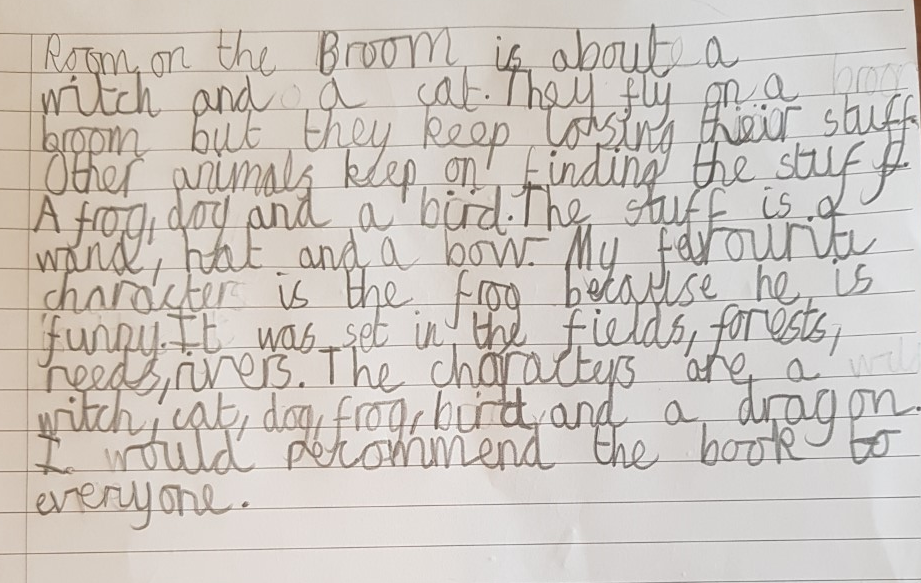 Room on the Broom is about a
witch and a cat. They fly on a
broom but they keep loosing their stuff.
Other animals keep on finding the stuff.
A frog, dog and a bird. The stuff is a
wand, hat and a bow. My favourite
character is the frog because he is
funny. It was set in the fields, forests,
reeds, rivers. The charactys are a
witch, cat, dog, frog, bird and a dragon
I would recommend the book to
everyone.